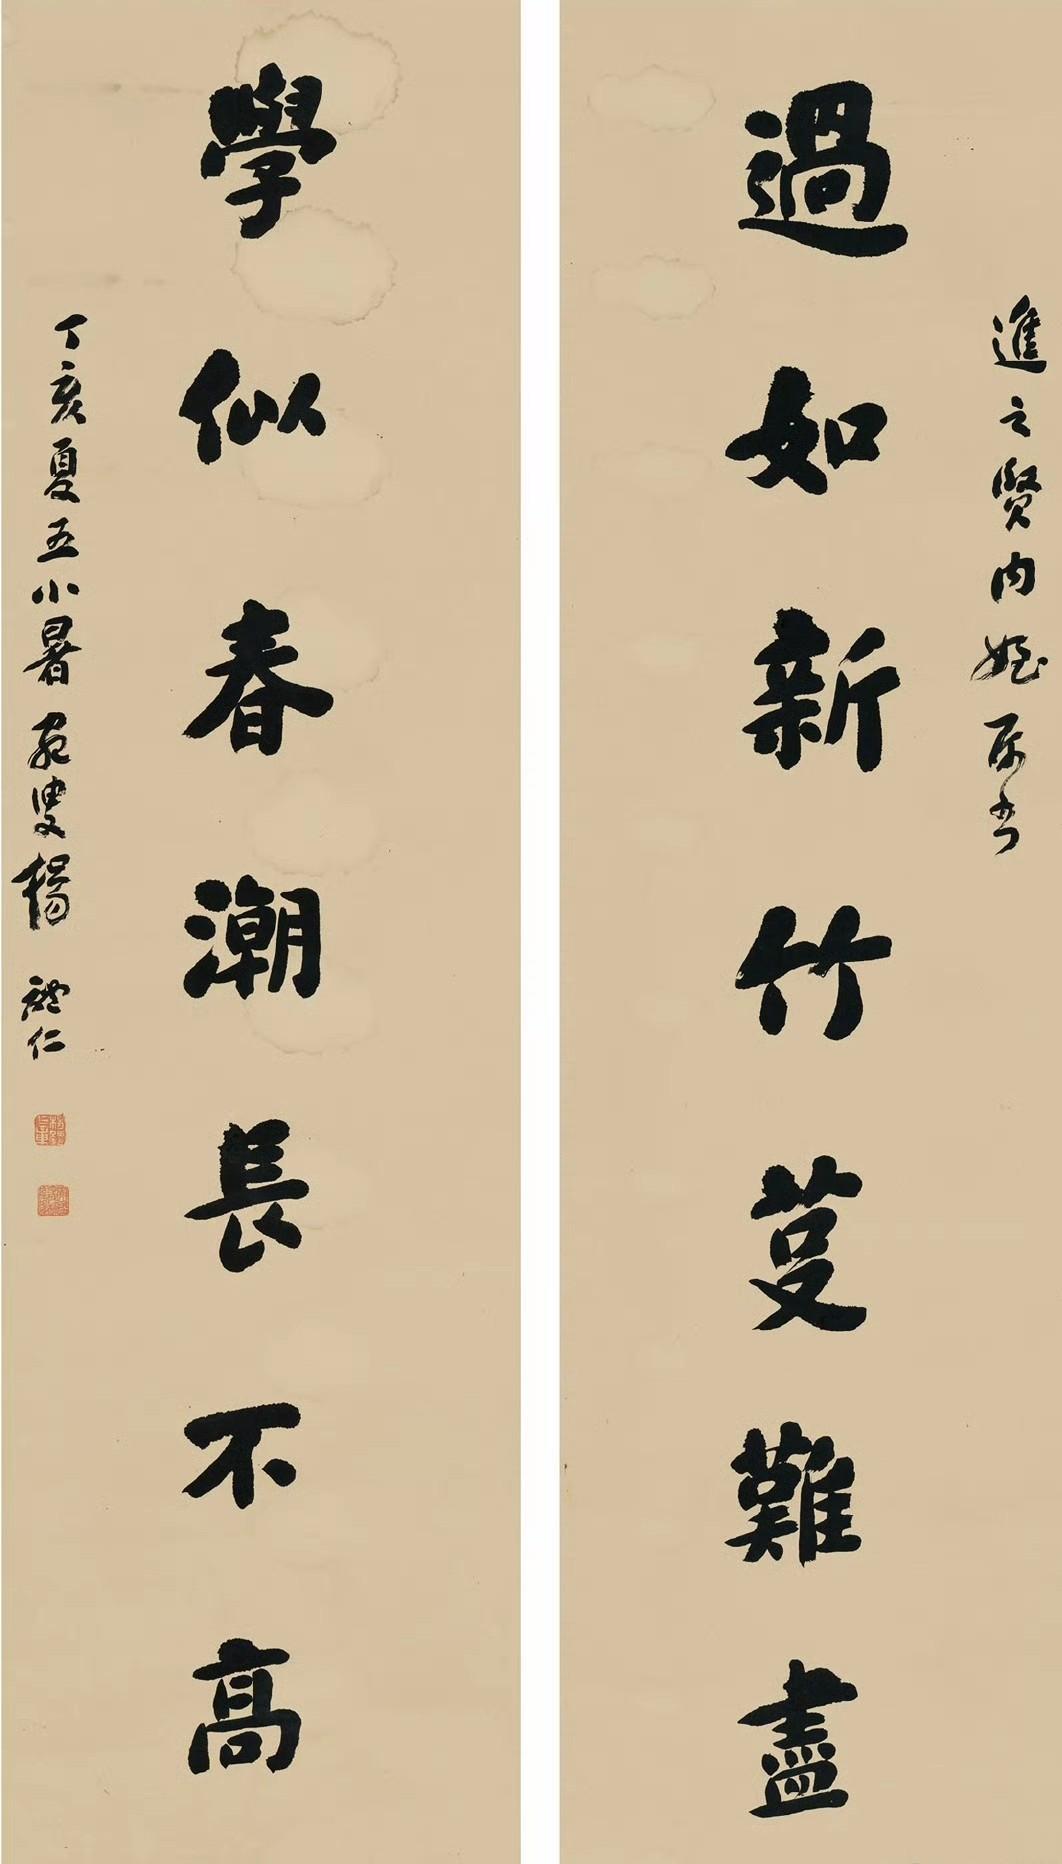 進之賢內姪屬書
過如新竹芟難盡
學似春潮長不高
丁亥夏五小暑叟楊體仁